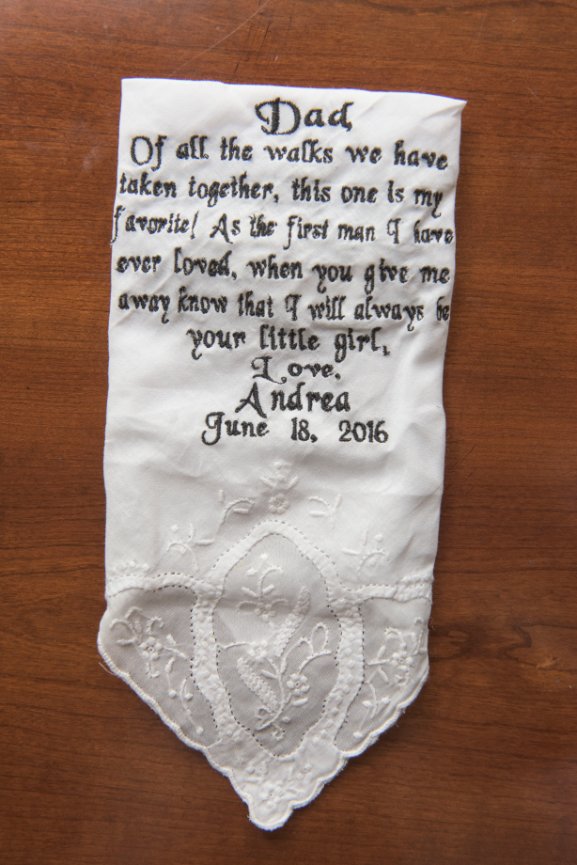 Dad,
Of all the walks we have
taken together, this one is my
favorite! As the first man I have
ever loved, when you give me
away know that I will always be
your little girl,
Love,
Andrea
June 18, 2016